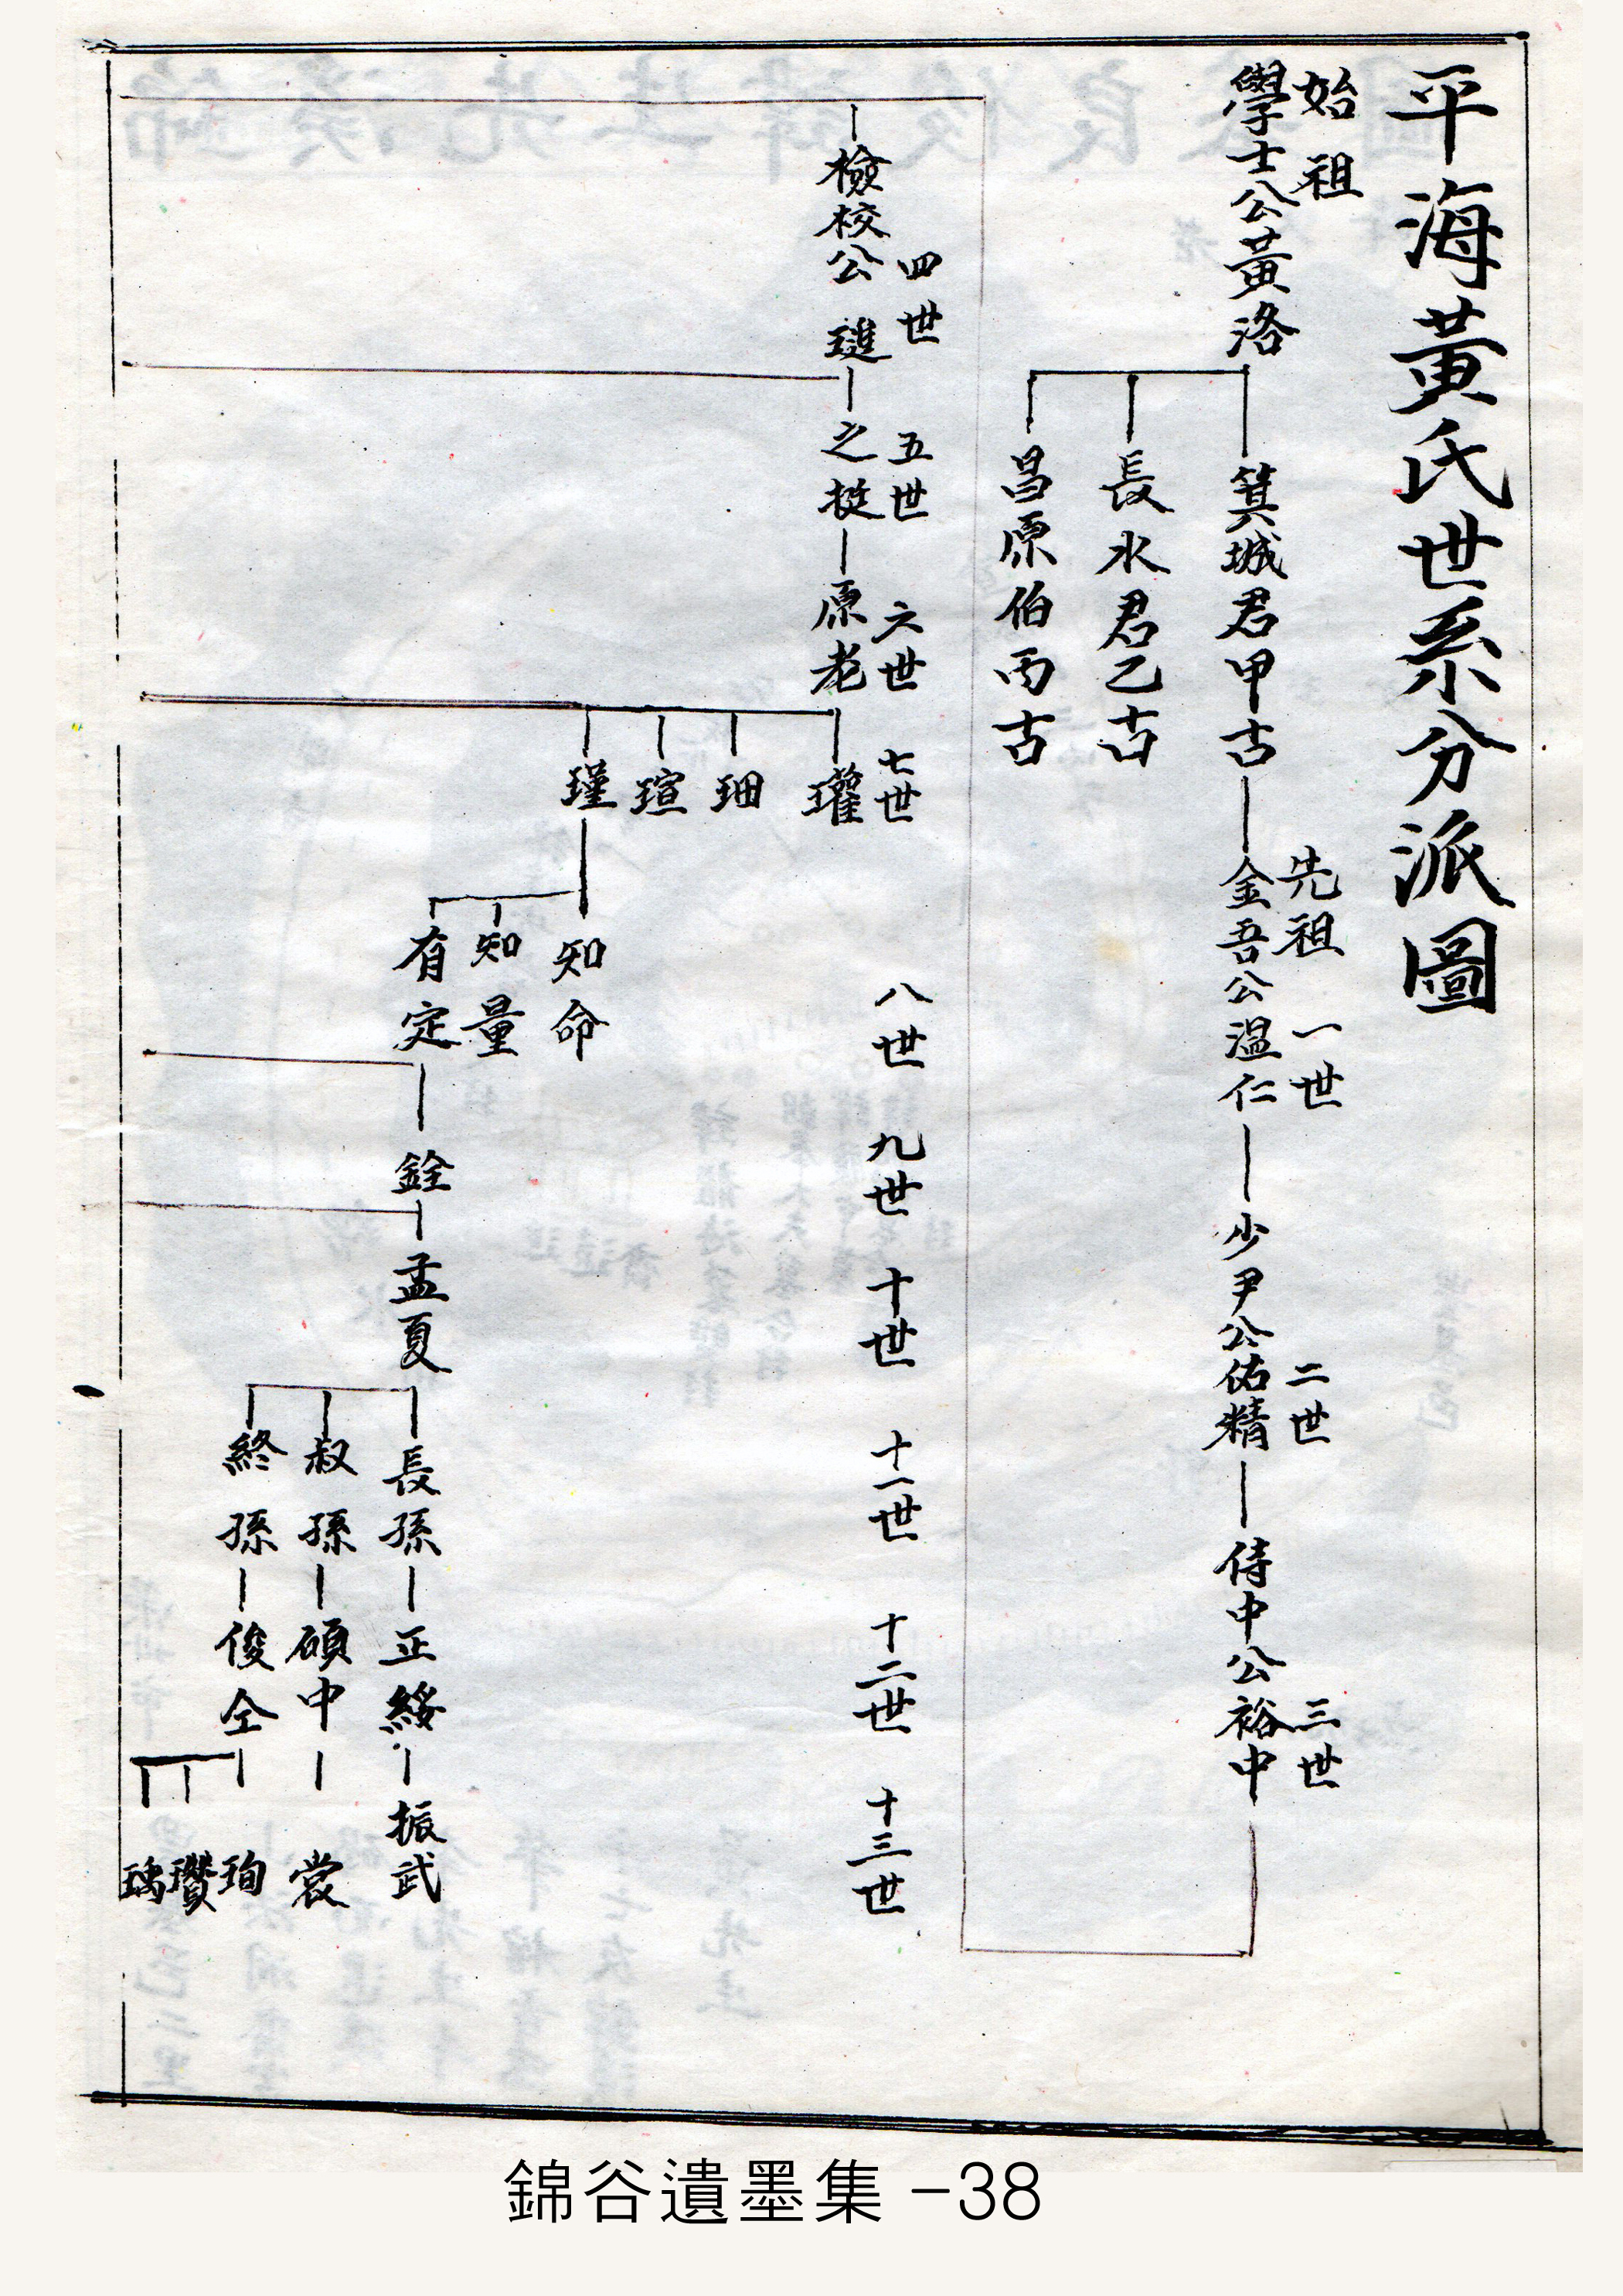 平海黃氏世系分派圖
始祖
學士公黃洛
箕城君甲古
先祖 一世
金吾公溫仁
少尹公佑精
二世
侍中公裕中
三世
長水君乙古
昌原伯丙古
四世
檢校公 璡
五世
之挺
六世
原老
七世
瓘
珊
瑄
瑾
八世
知命
知量
有定
九世
銓
十世
孟夏
十一世
長孫
叔孫
終孫
十二世
正綏
碩中
俊仝
十三世
振武
裳
珣
瓚
瑀
錦谷遺墨集 -38